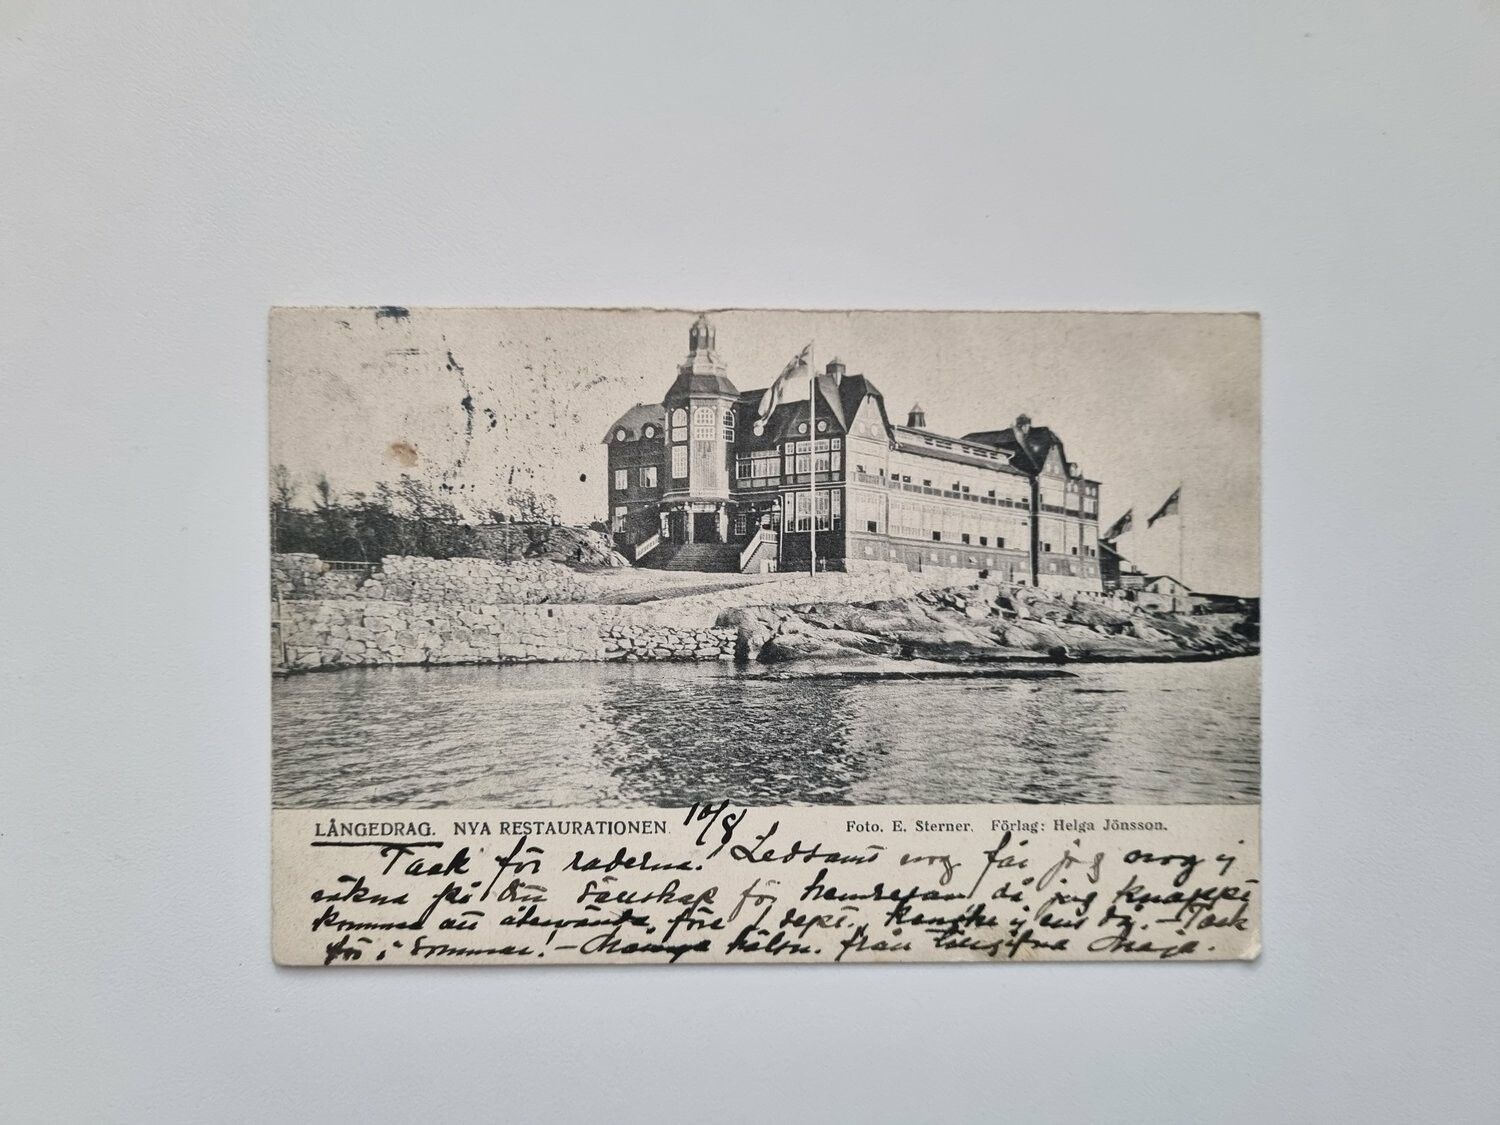 LÅNGEDRAG. NYA RESTAURATIONEN. 10/8 Foto. E. Sterner. Förlag: Helga Jönsson.
Tack för raderna! Ledsamt nog får jag nog ej
räkna på Ditt sällskap för hemresan då jag knappt
kommer att återvända före 1 sept. Kanske ej ens då. – Tack
för i sommar! – Många häls. från tillgifna Maja.